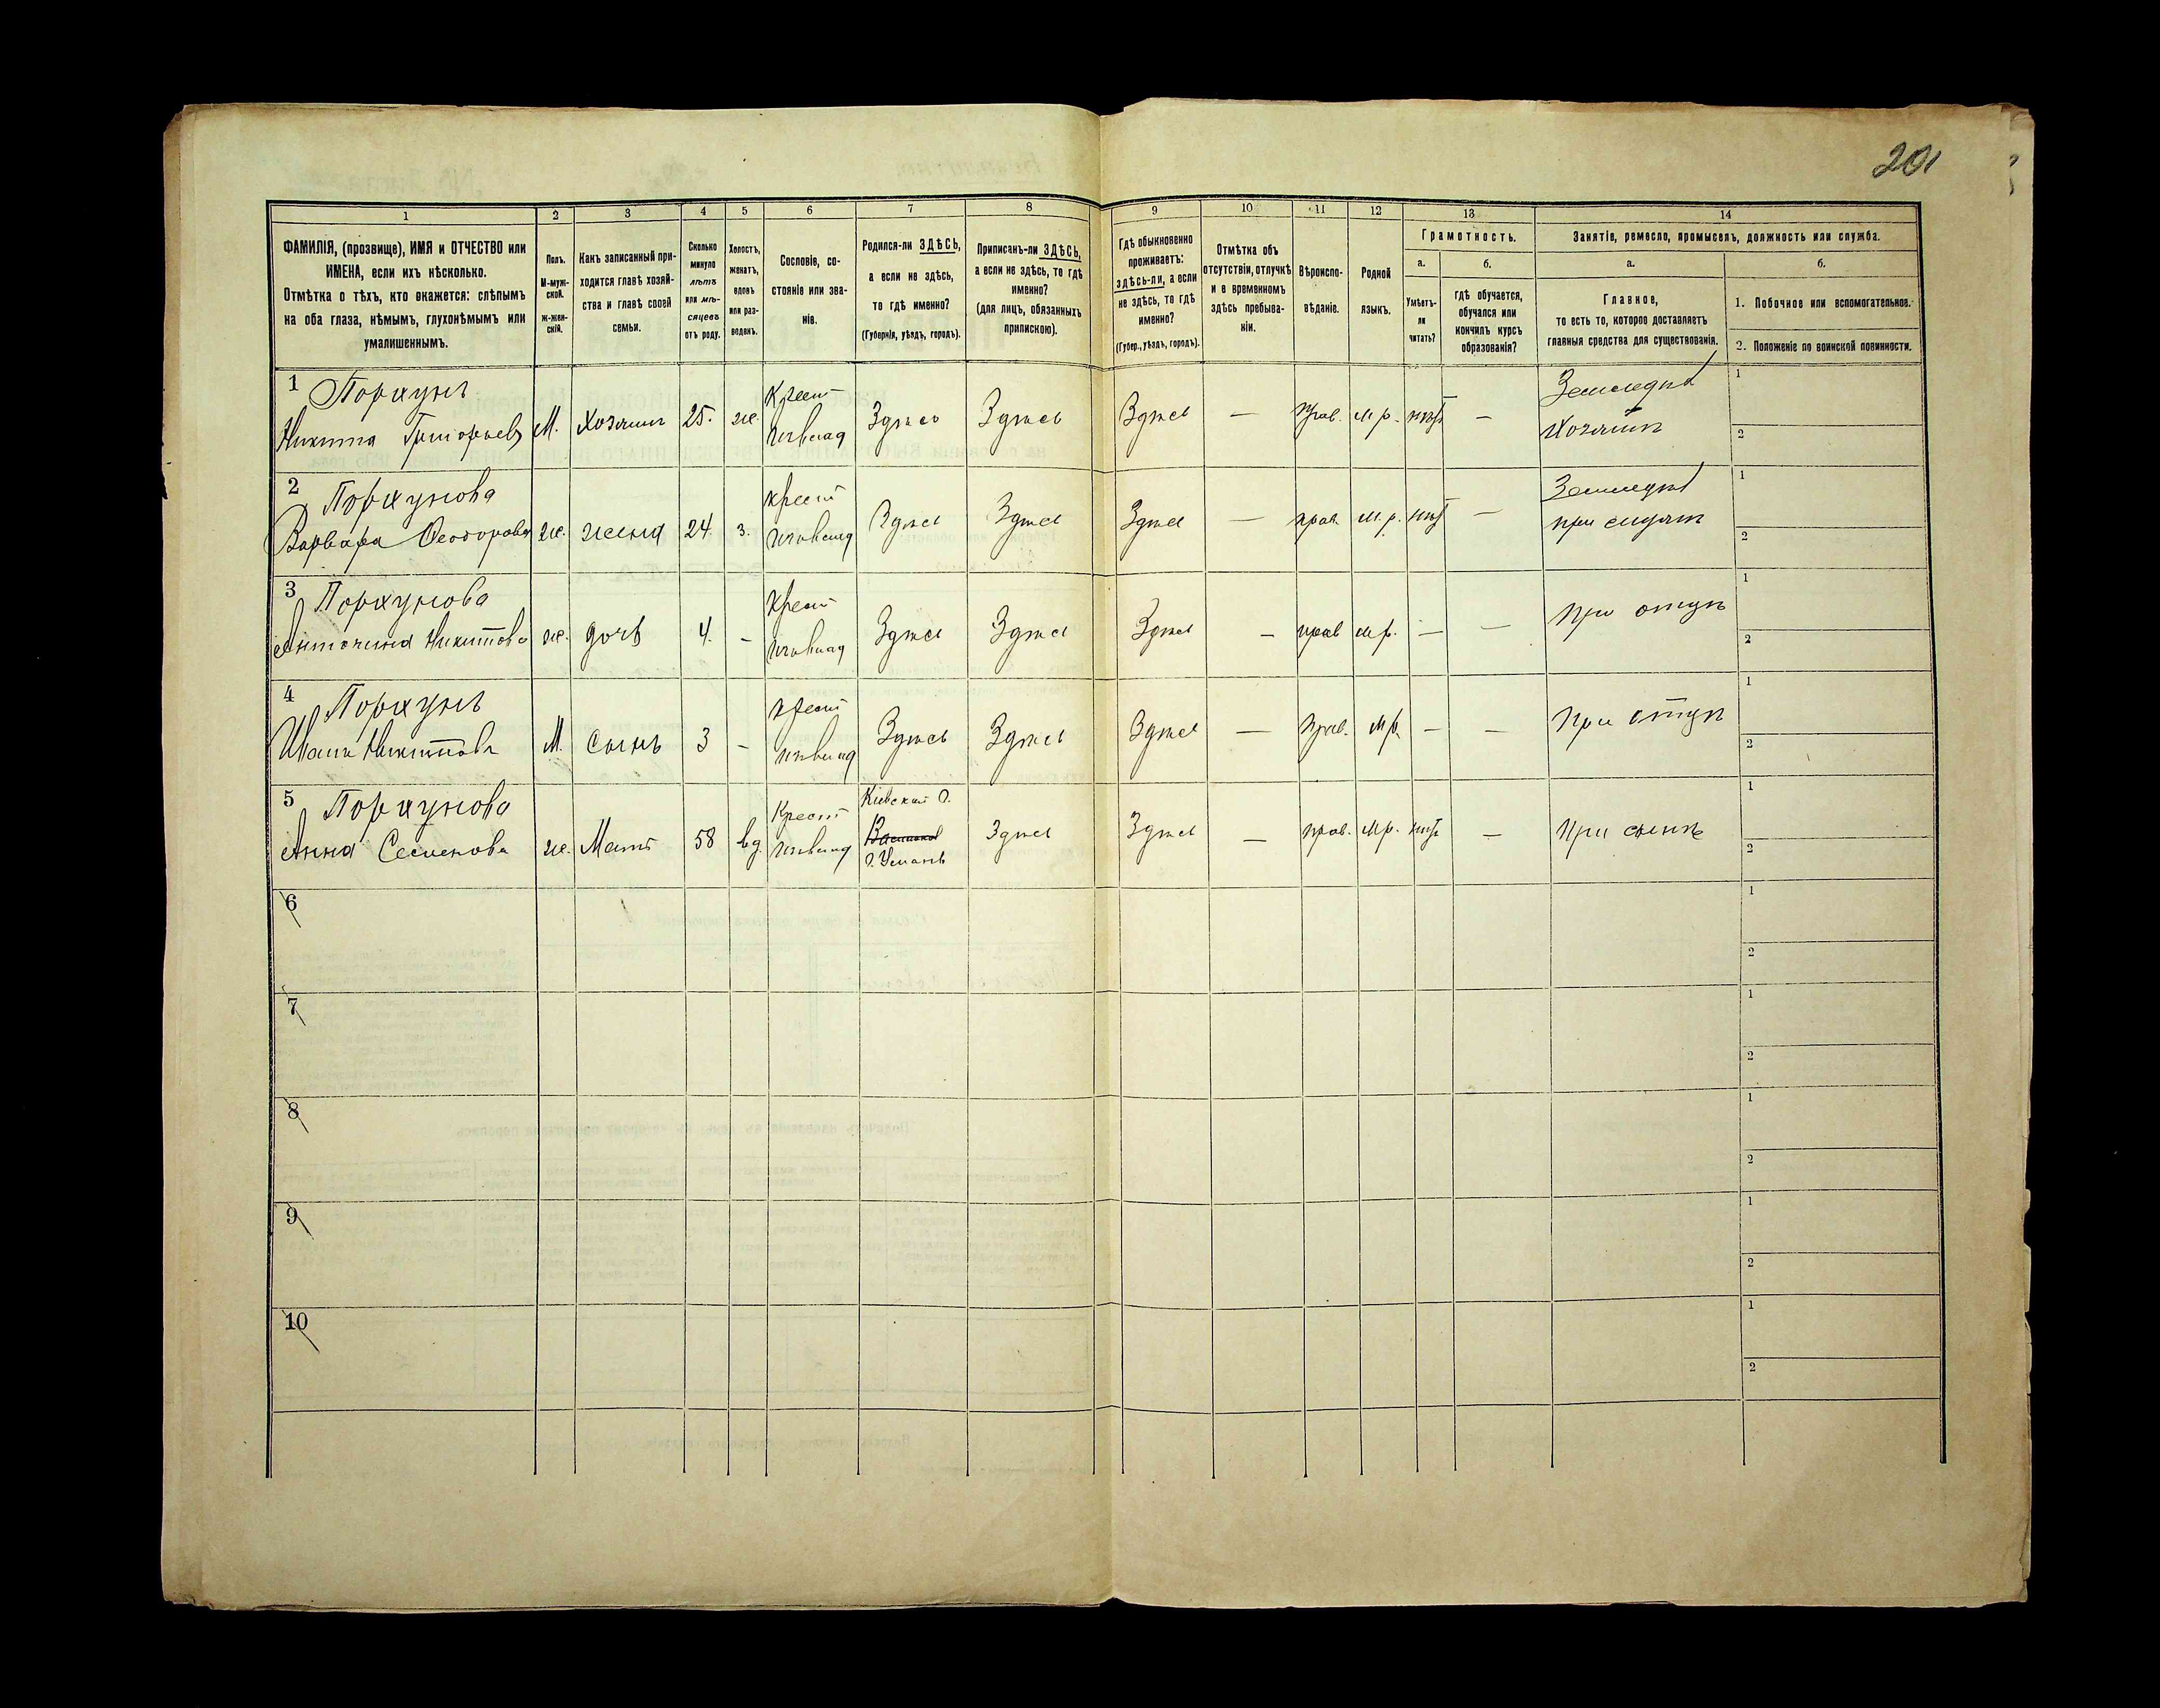 201
1 2 3 4 5 6 7 8 9 10 11 12 13 14
ФАМИЛІЯ, (прозвище), ИМЯ и ОТЧЕСТВО или
ИМЕНА, если ихъ нѣсколько.
Отмѣтка о тѣхъ, кто окажется: слѣпымъ
на оба глаза, нѣмымъ, глухонѣмымъ или
умалишеннымъ.
Полъ.
М-муж-
ской.
ж-жен-
скій.
Какъ записанный при-
ходится главѣ хозяй-
ства и главѣ своей
семьи.
Сколько
минуло
лѣтъ
или мѣ-
сяцевъ
отъ роду.
Холостъ,
женатъ,
вдовъ
или раз-
веденъ.
Сословіе, со-
стояніе или зва-
ніе.
Родился-ли ЗДѢСЬ,
а если не здѣсь,
то гдѣ именно?
(Губернія, уѣздъ, городъ).
Приписанъ-ли ЗДѢСЬ,
а если не здѣсь, то гдѣ
именно?
(для лицъ, обязанныхъ
припискою).
Гдѣ обыкновенно
проживаетъ:
здѣсь-ли, а если
не здѣсь, то гдѣ
именно?
(Губер., уѣздъ, городъ).
Отмѣтка объ
отсутствіи, отлучкѣ
и о временномъ
здѣсь пребыва-
ніи.
Вѣроиспо-
вѣданіе.
Родной
языкъ.
Грамотность.
а.
Умѣетъ-
ли
читать?
б.
гдѣ обучается,
обучался или
кончилъ курсъ
образованія?
Занятіе, ремесло, промыселъ, должность или служба.
а.
Главное,
то есть то, которое доставляетъ
главныя средства для существованія.
б.
1. Побочное или вспомогательное.
2. Положеніе по воинской повинности.
1 Порхунъ
Никита Григорьевъ М. Хозяинъ 25. ж. Крест Здѣсь Здѣсь Здѣсь — прав. м.р. нѣтъ — Земледѣл
Хозяинъ
1
2
2 Порхунова
Варвара Феодорова ж. жена 24 з. крест Здѣсь Здѣсь Здѣсь — прав. м.р. нѣтъ — Земледѣл
при мужѣ
1
2
3 Порхунова
Антонина Никитова ж. дочь 4. – Крест Здѣсь Здѣсь Здѣсь — прав м.р. — — При отцѣ
1
2
4 Порхунъ
Иванъ Никитовъ М. Сынъ 3 – крест Здѣсь Здѣсь Здѣсь — прав. м.р. — — При отцѣ
1
2
5 Порхунова
Анна Семенова ж. Мать 58 вд. Крест Кіевская г.
г. Умань Здѣсь Здѣсь — прав. м.р. нѣтъ — При сынѣ
1
2
6
1
2
7
1
2
8
1
2
9
1
2
10
1
2